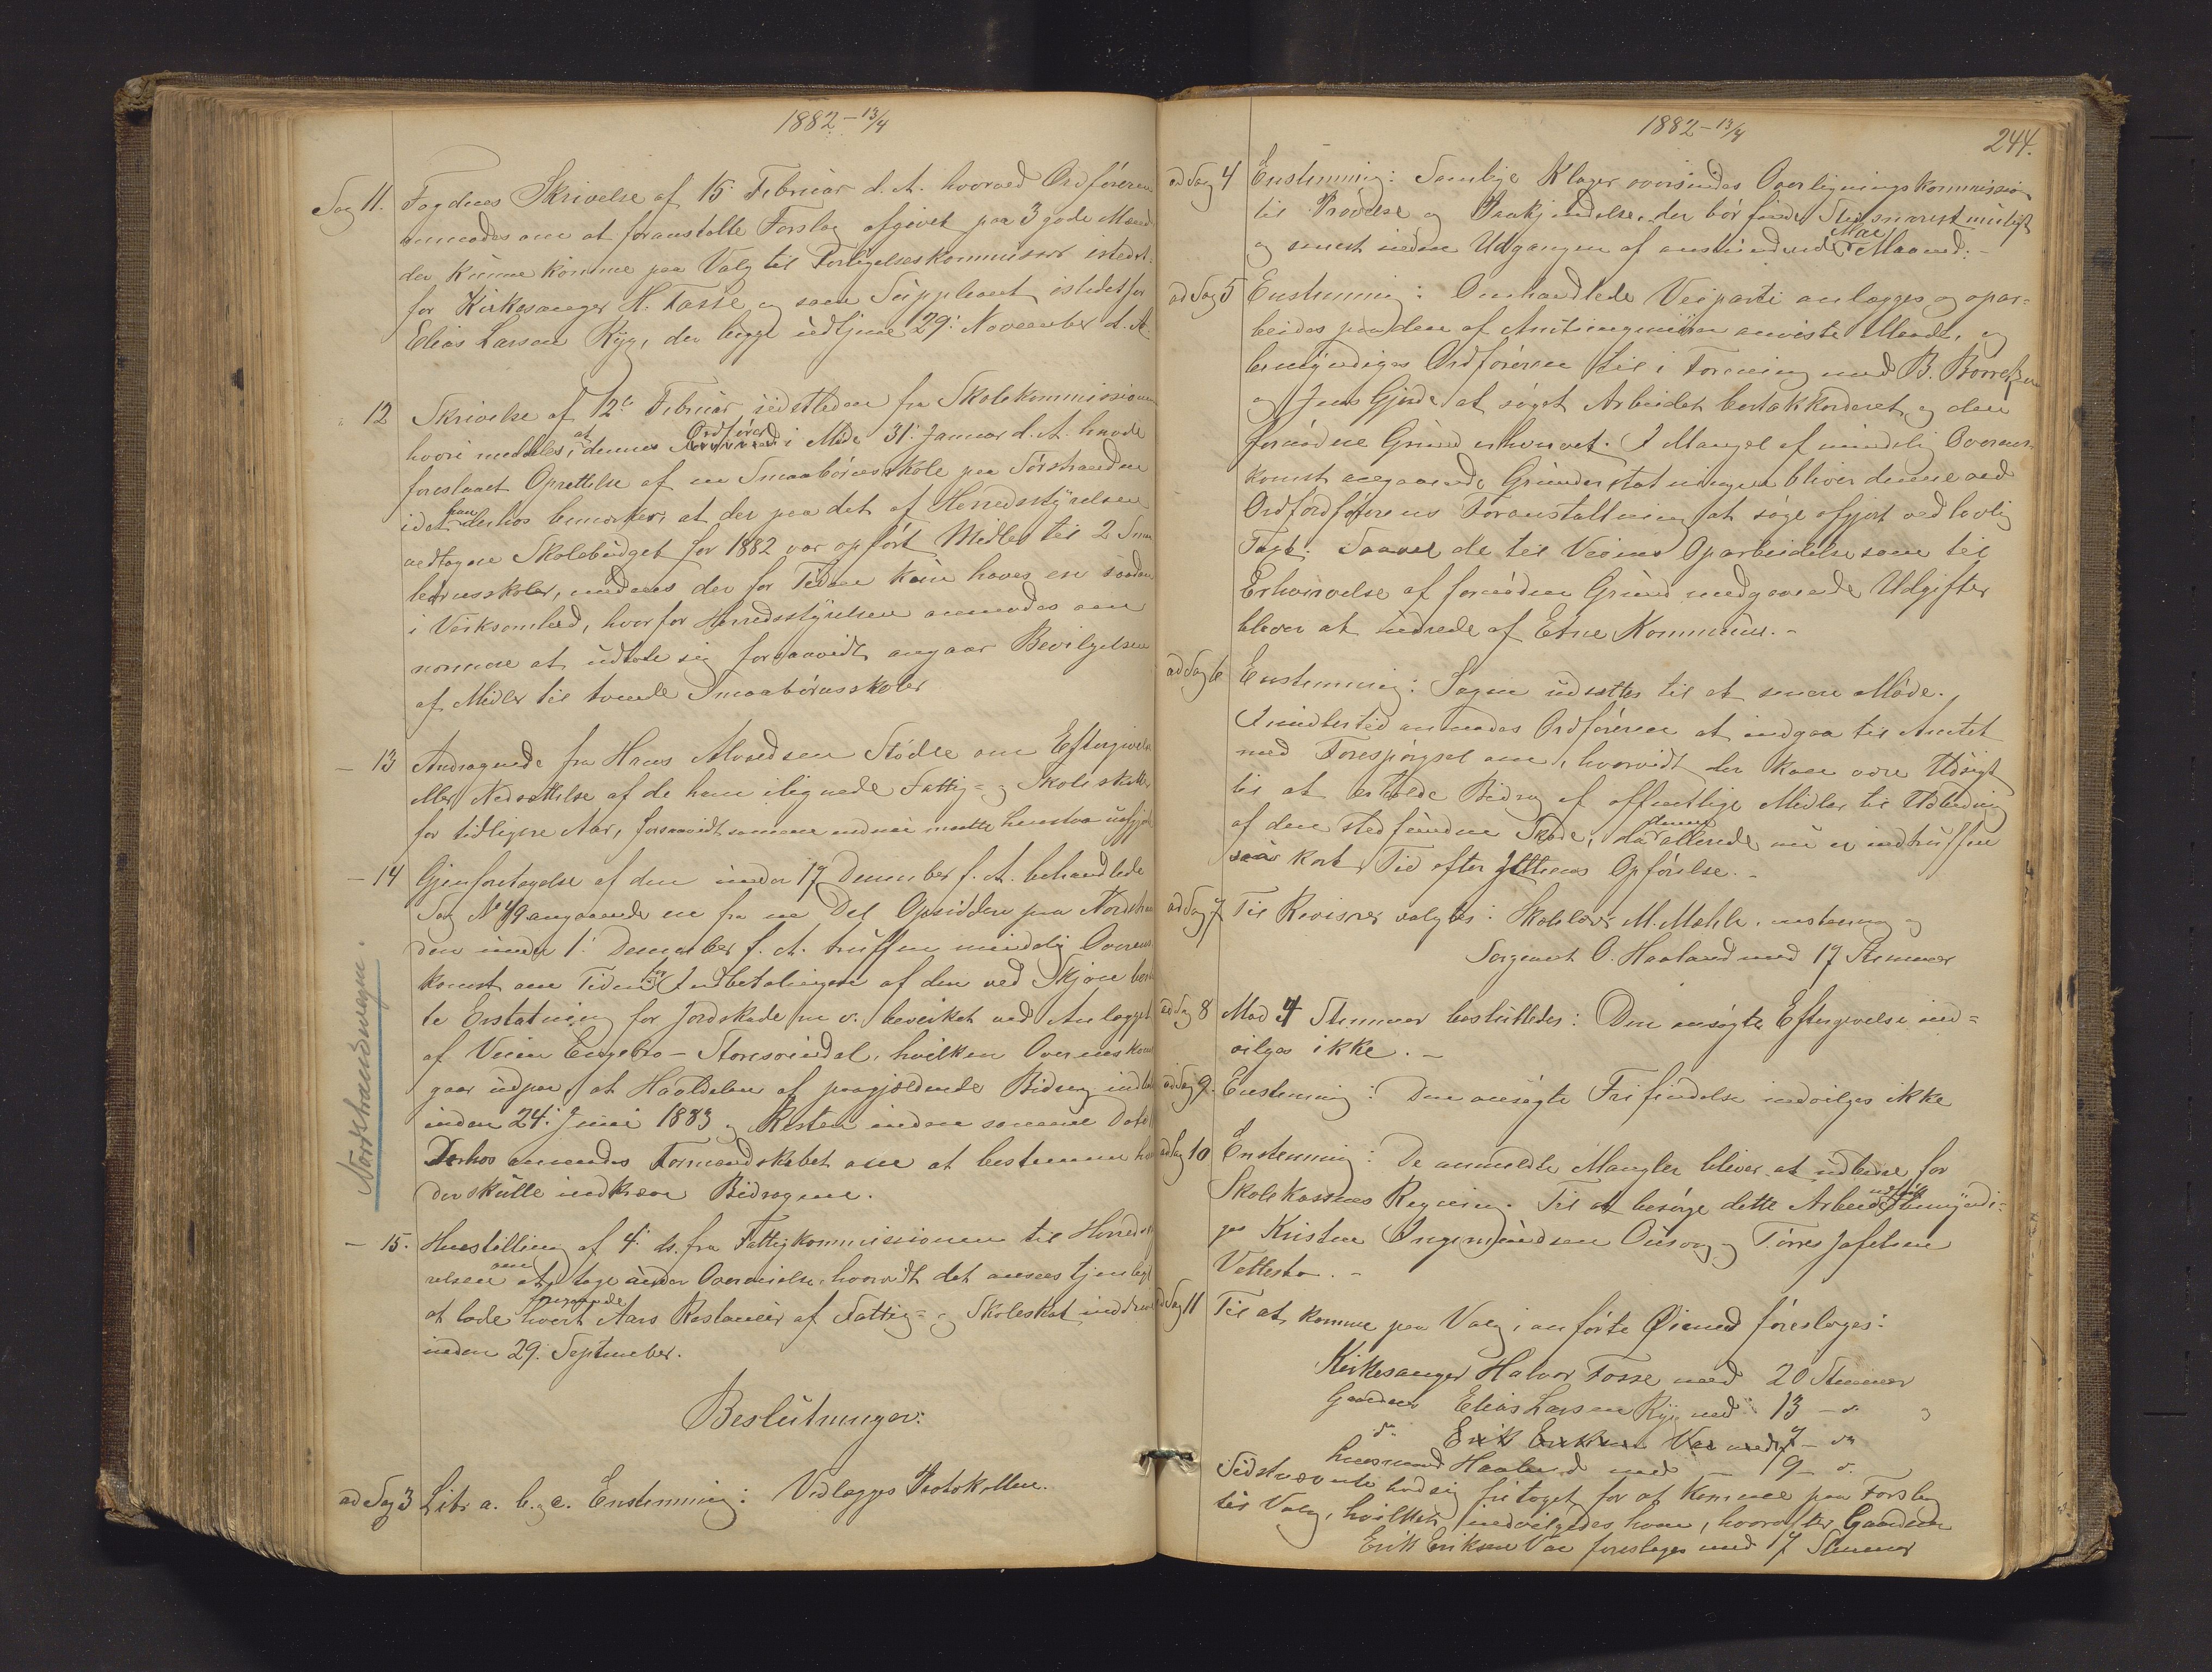 1882 - 13/4
Sag 11. Fogdens Skrivelse af 15. Februar d. A. hvorved Ordføreren
anmodes om at foranstalte Forslag afgivet paa 3 gode Mænd
der kunne komme paa Valg til Forligelseskommissær istedet-
for Kirkesanger H. Fosse og som Suppleant istedetfor
Elias Larsen Ryg, der begge udtjene 29. November d. A.
" 12 Skrivelse af 12te Februar sidstleden fra Skolekommissionen
hvori meddeles, at dennes Ordfører i Møde 31. Januar d. A. havde
foreslaaet Oprettelse af en Smaabørnsskole paa Sørstranden
idet han derhos bemærker, at der paa det af Herredsstyrelsen
vedtagne Skolebudget for 1882 var opført Midler til 2 Smaa
børnsskoler, medens der for Tiden kun haves en saadan
i Virksomhed, hvorfor Herredsstyrelsen anmodes om
nærmere at udtale sig forsaavidt angaar Bevilgelsen
af Midler til tvende Smaabørnsskoler
- 13 Andragende fra Hans Amundsen Stødle om Eftergivelse
eller Nedsættelse af de ham ilignede Fattig- og Skoleskatter
for tidligere Aar, forsaavidt samme endnu maatte henstaa uafgjort
- 14 Gjenforetagelse af den under 17 December f. A. behandlede
Sag No 49 angaaende en fra en Del Opsiddere paa Nordstran
den under 1. December f. A. truffen mindelig Overens
komst om Tiden for Indbetalingen af den ved Skjøn
te Erstatning for Jordskade m. v. bevirket ved Anlægget
af Veien Engebro - Storesvindal, hvilken Overenskomst
gaar udpaa, at Halvdelen af paagjældende Bidrag
inden 24. Juni 1883 og Resten inden samme Dato
Derhos anmodes Formandskabet om at bestemme
der skulle indkræve Bidragene.
Nordstrandsveien.
- 15. Henstilling af 4. ds. fra Fattigkommissionen til Herredssty
relsen om at tage under Overveielse, hvorvidt det ansees tjenligt
at lade hvert foregaaende Aars Restancer af Fattig- og Skoleskat
inden 29. September.
Beslutninger:
ad Sag 3 Litr a. b. og c. Enstemmig: Vedlægges Protokollen.
1882 - 13/4
244.
ad Sag 4 Enstemmig: Samtlige Klager oversendes Overligningskommission
til Prøvelse og Paakjendelse, der bør finde Sted snarest muligt
og senest inden Udgangen af anstundende Mai Maaned. -
ad Sag 5 Enstemmig: Omhandlede Veiparti anlægges og opar-
beides paa den af Amtsingeniøren anviste Maade, og
bemyndiges Ordføreren til i Forening med B. Børretzen
og Jens Gjerde at søge Arbeidet bortakkorderet og den
fornødne Grund erhvervet. I Mangel af mindelig Overens-
komst angaaende Grunderstatningen bliver denne ved
Ordfordførerens Foranstaltning at søge afgjort ved lovlig
Taxt. Saavel de til Veiens Oparbeidelse som til
Erhvervelse af fornøden Grund medgaaende Udgifter
bliver at udrede af Etne Kommune. -
ad Sag 6 Enstemmig: Sagen udsættes til et senere Møde.
Imidlertid anmodes Ordføreren at indgaa til Amtet
med Forespørgsel om, hvorvidt der kan være Udsigt
til at erholde Bidrag af offentlige Midler til Udbedring
af den stedfundne Skade, da denne allerede nu er indtruffen
saa kort Tid efter Opførelse. -
ad Sag 7 Til Revisorer valgtes: Skolelærer M. Mæhle enstemmig og
Sergeant O. Haaland med 17 Stemmer
ad Sag 8 Mod 4 Stemmer besluttedes: Den ansøgte Eftergivelse ind-
vilges ikke. -
ad Sag 9. Enstemmig: Den ansøgte Frifindelse indvilges ikke
ad Sag 10 Enstemmig: De anmeldte Mangler bliver at udbedre for
Skolekassens Regning. Til at besørge dette Arbeide udført bemyndi-
ges Kristen Ingemundsen Ousvog og Tørres Josefsen
Vettestø. -
ad Sag 11 Til at komme paa Valg i anførte Øiemed foreslages:
Kirkesanger Halvor Fosse med 20 Stemmer
Gaardm. Elias Larsen Ryg med 13 - do.
do. Erik Eriksen Vae med 7 - do
Lensmand Haaland med - 9 - do.
Sidstnævnte bad sig fritaget for at komme paa Forslag
til Valg, hvilket indvilgedes ham, hvorefter Gaardm
Erik Eriksen Vae foreslages med 17 Stemmer